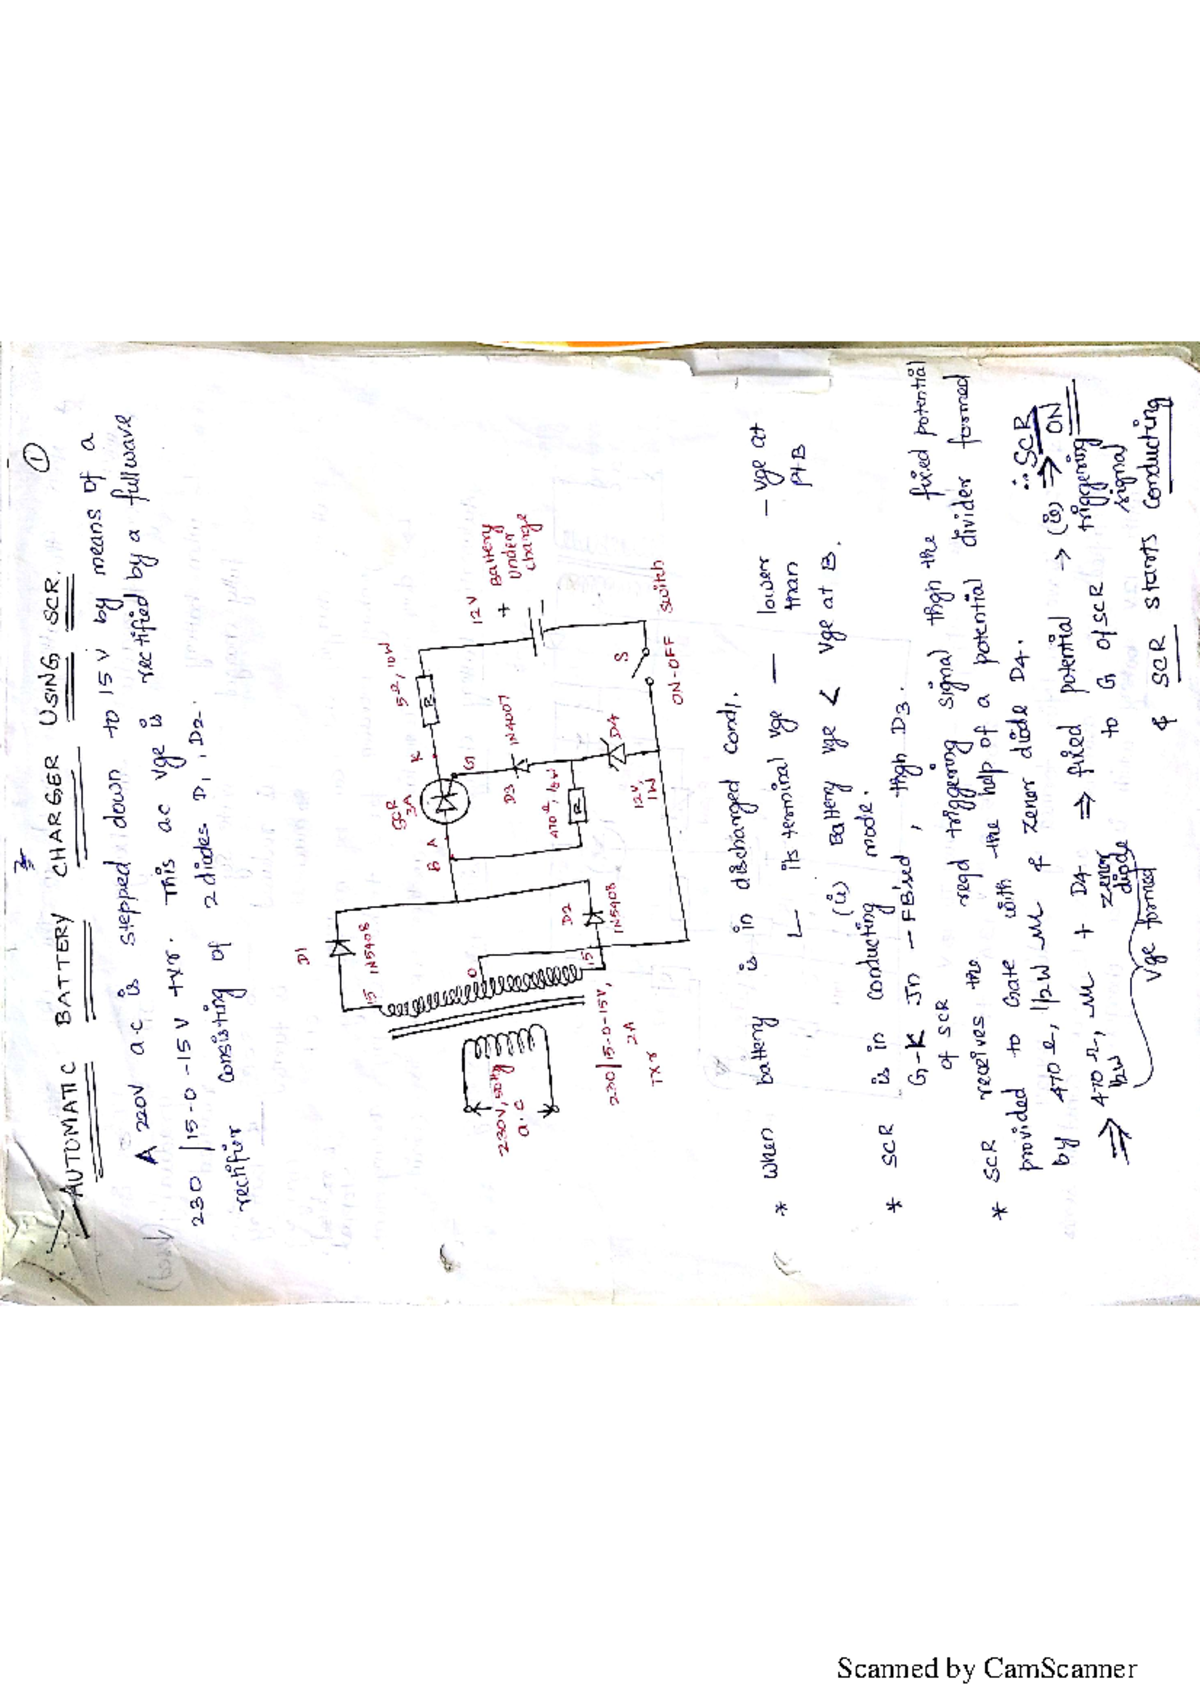 ①
AUTOMATIC BATTERY CHARGER USING SCR.
A 220V a.c is stepped down to 15V by means of a
230/15-0-15V txr. This ac vge is rectified by a fullwave
rectifier consisting of 2 diodes D1, D2.
D1
1N5408
15
0
15
D2
1N5408
230V, 50Hz
a.c
230/15-0-15V,
2A
TXr
B
A
SCR
3A
K
G
5Ω, 10W
R
D3
1N4007
470Ω, ½W
R
D4
12V,
1W
12V
+
Battery
Under
Charge
S
ON-OFF Switch
* When battery is in discharged cond.
its terminal vge — lower than — vge at pt B
(is) Battery vge < vge at B.
* SCR is in conducting mode.
G-K Jn — FB'sed, thgh D3.
of SCR
* SCR receives the reqd triggering signal thgh the fixed potential
provided to Gate with the help of a potential divider formed
by 470Ω, 1/2W & zener diode D4.
⇒ 470Ω, ½W + D4 ⇒ fixed potential → (is) ⇒ ∴ SCR ON
zener diode
to G of SCR
triggering signal
Vge formed
& SCR starts conducting
Scanned by CamScanner